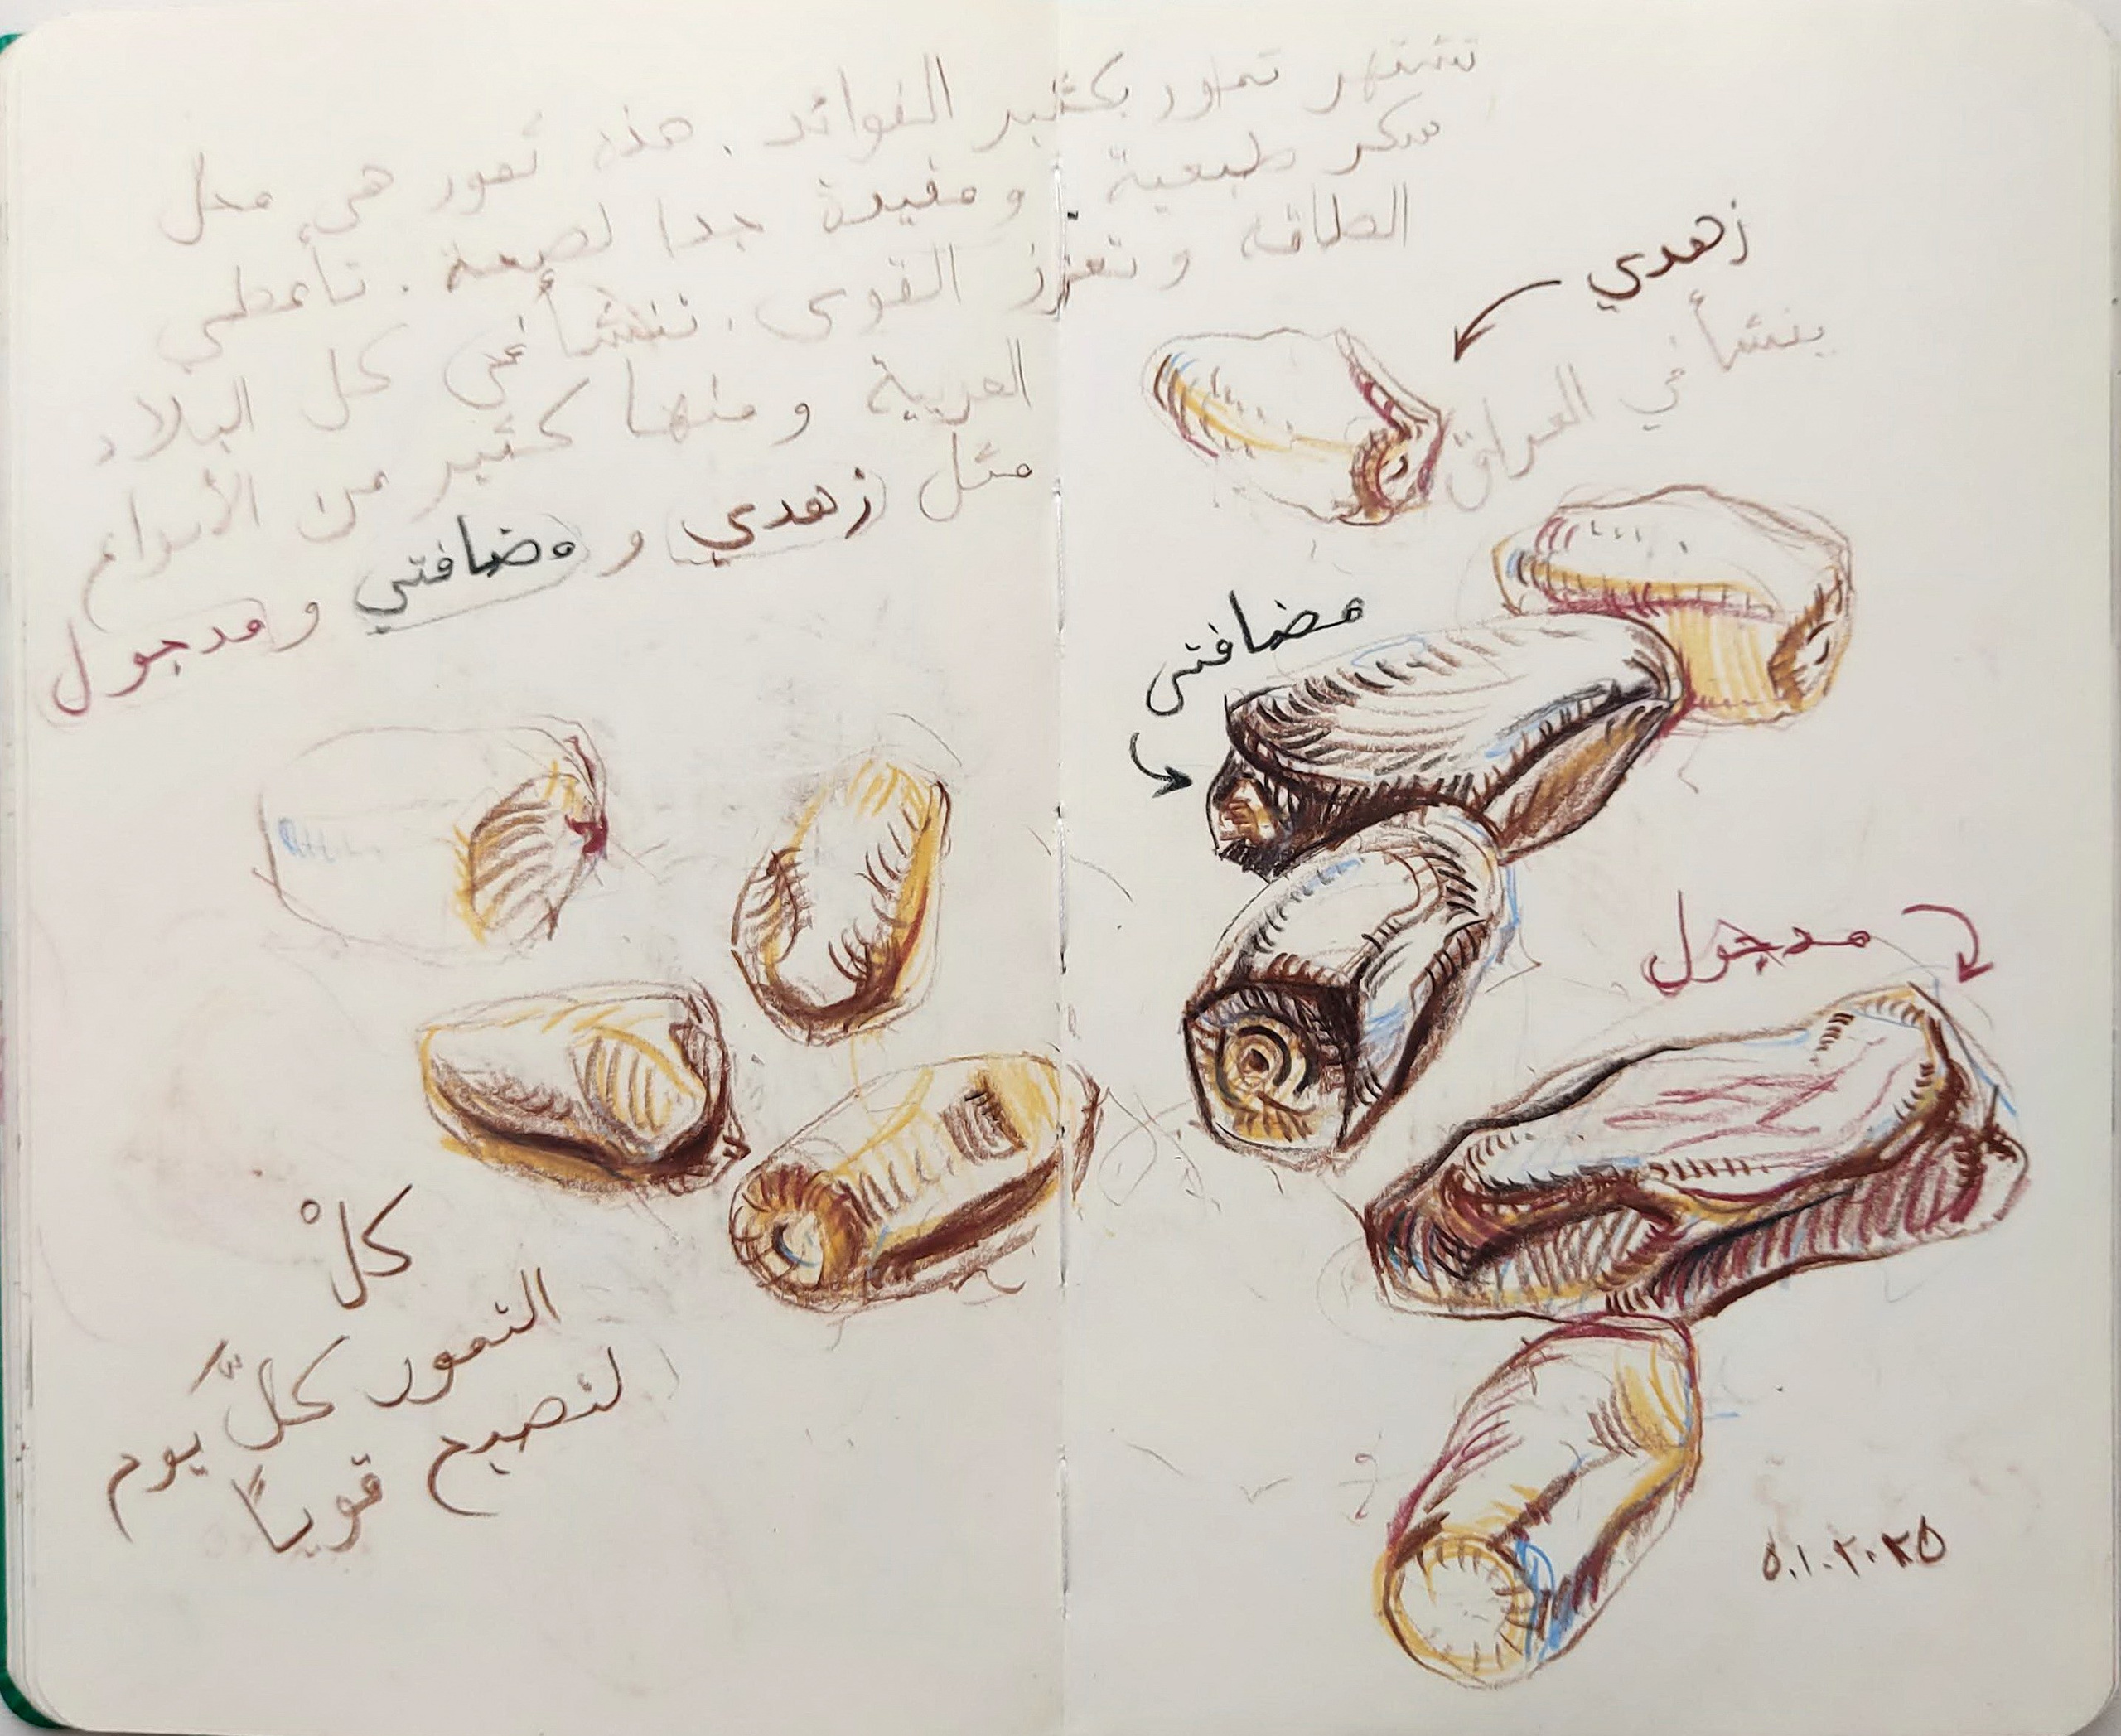 تشتهر تمور بكثير الفوائد. هذه تمور هي محل
سكر طبعية ومفيدة جدا لصحة. تأعطي
الطاقه وتعزز القوى. تنشأ في كل البلاد
العربية ومنها كثير من الأنواع
مثل زهدي و مضافتي و مدجول
زهدي
ينشأ في العراق
مضافتي
مدجول
كلْ
التمور كلَّ يوم
لتصبح قويًا
٥.١.٢٠٢٥